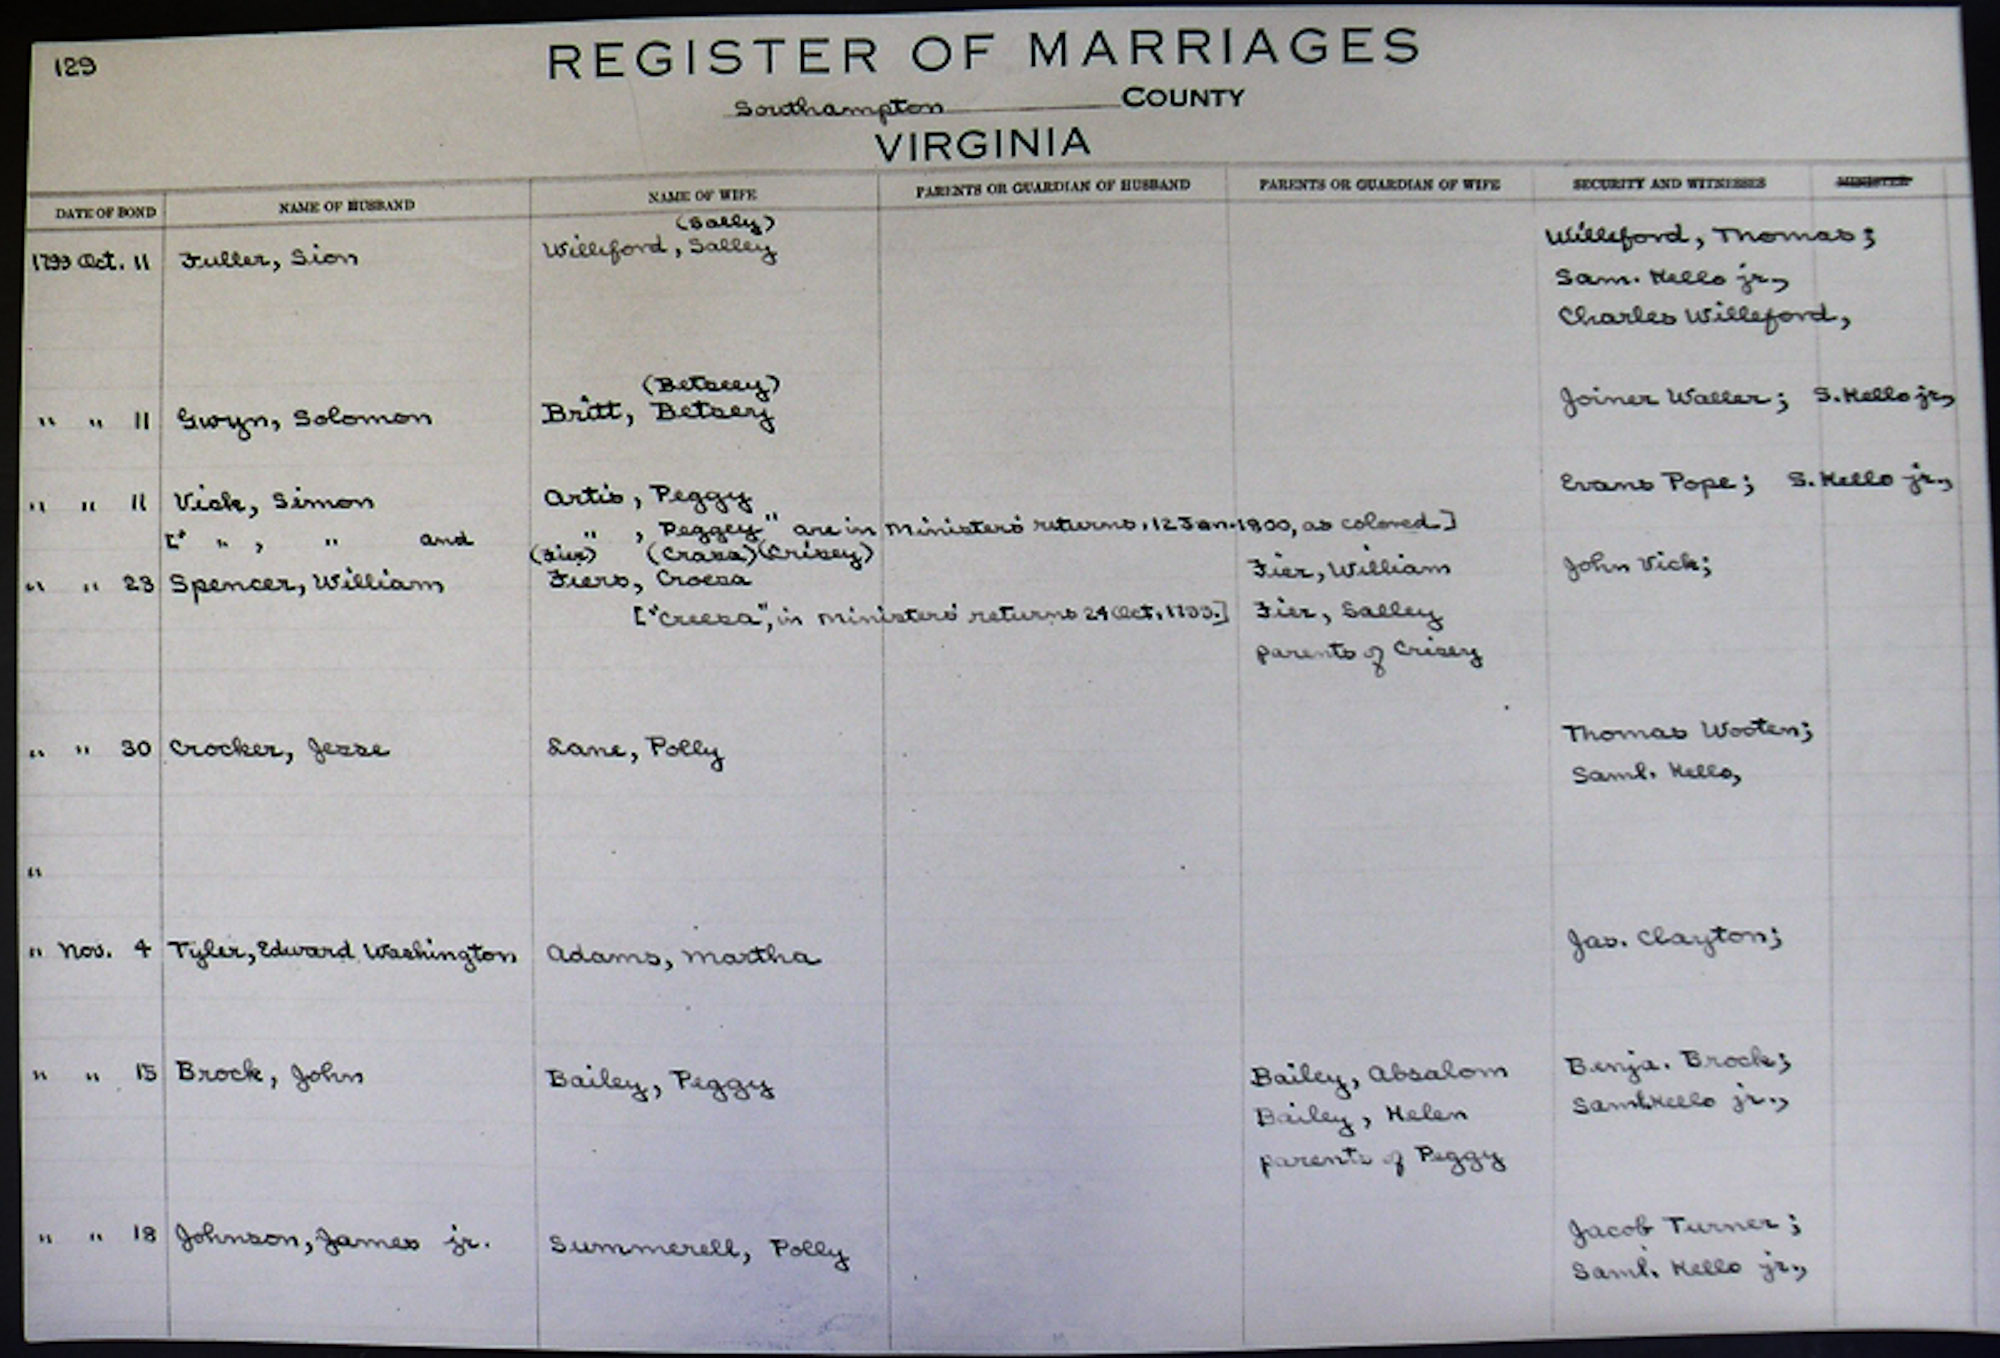 129
REGISTER OF MARRIAGES
Southampton COUNTY
VIRGINIA
DATE OF BOND NAME OF HUSBAND NAME OF WIFE PARENTS OR GUARDIAN OF HUSBAND PARENTS OR GUARDIAN OF WIFE SECURITY AND WITNESSES MINISTER
(Sally)
1799 Oct. 11 Fuller, Sion Williford, Salley Willeford, Thomas;
Sam. Kello jr.,
Charles Willeford,
(Betsey)
" " 11 Gwyn, Solomon Britt, Betsery Joiner Waller; S. Kello jr.,
" " 11 Vick, Simon Artis, Peggy Evans Pope; S. Kello jr.,
[" " , " and " , Peggey" are in Ministers' returns, 12 Jan. 1800, as colored.]
(Fier) (Crasa) (Crisey)
" " 23 Spencer, William Fiers, Croesa Fier, William John Vick;
["Creesa", in Ministers' returns 24 Oct. 1799.] Fier, Salley
parents of Crisey
" " 30 Crocker, Jesse Lane, Polly Thomas Wooten;
Saml. Kello,
"
" Nov. 4 Tyler, Edward Washington Adams, Martha Jas. Clayton;
" " 15 Brock, John Bailey, Peggy Bailey, Absalom Benja. Brock;
Bailey, Helen Saml Kello jr.,
parents of Peggy
" " 18 Johnson, James jr. Summerell, Polly Jacob Turner;
Saml. Kello jr.,